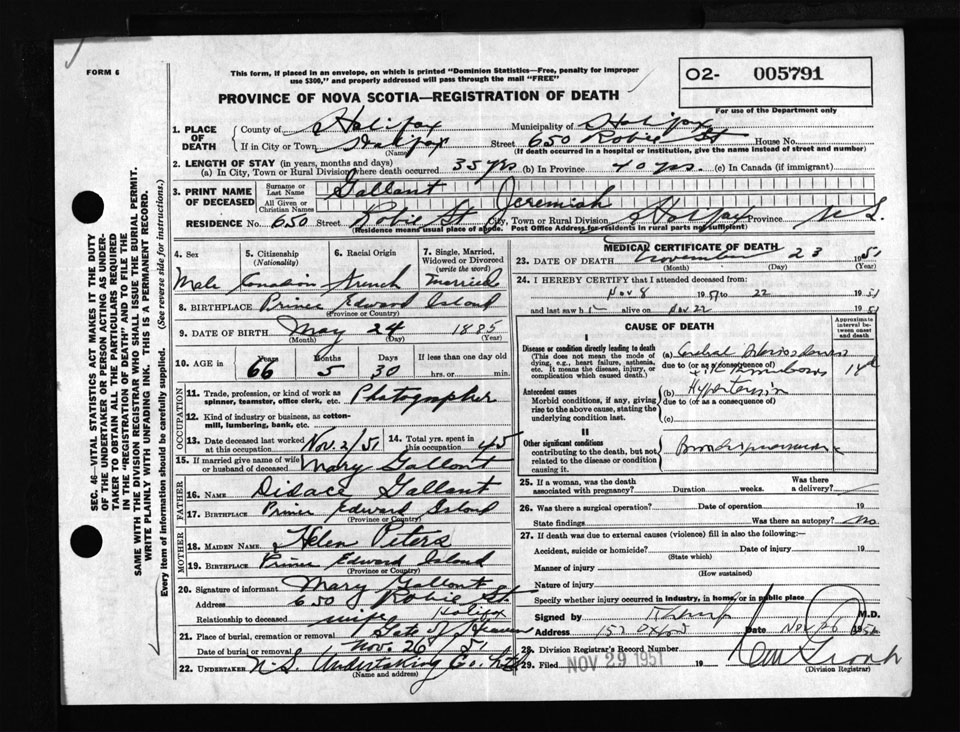 FORM 6
This form, if placed in an envelope, on which is printed "Dominion Statistics—Free, penalty for improper
use $300," and properly addressed will pass through the mail "FREE"
02- 005791
For use of the Department only
PROVINCE OF NOVA SCOTIA—REGISTRATION OF DEATH
SEC. 46—VITAL STATISTICS ACT MAKES IT THE DUTY
OF THE UNDERTAKER OR PERSON ACTING AS UNDER-
TAKER TO OBTAIN ALL THE PARTICULARS REQUIRED
IN THE "REGISTRATION OF DEATH" AND TO FILE THE
SAME WITH THE DIVISION REGISTRAR WHO SHALL ISSUE THE BURIAL PERMIT.
WRITE PLAINLY WITH UNFADING INK. THIS IS A PERMANENT RECORD.
Every item of information should be carefully supplied. (See reverse side for instructions.)
1. PLACE OF DEATH County of Halifax Municipality of Halifax
If in City or Town Halifax Street 650 Robie St House No.
(Name) (If death occurred in a hospital or institution, give the name instead of street and number)
2. LENGTH OF STAY (in years, months and days)
(a) In City, Town or Rural Division where death occurred 35 yrs (b) In Province 40 yrs. (c) In Canada (if immigrant)
3. PRINT NAME OF DECEASED Surname or Last Name Gallant
All Given or Christian Names Jeremiah
RESIDENCE No. 650 Street Robie St City, Town or Rural Division Halifax Province N S.
(Residence means usual place of abode. Post Office Address for residents in rural parts not sufficient)
4. Sex 5. Citizenship (Nationality) 6. Racial Origin 7. Single, Married, Widowed or Divorced (write the word)
Male Canadian French Married
8. BIRTHPLACE Prince Edward Island
(Province or Country)
9. DATE OF BIRTH May 24 1885
(Month) (Day) (Year)
10. AGE in Years Months Days If less than one day old
66 5 30 hrs. or min.
OCCUPATION
11. Trade, profession, or kind of work as spinner, teamster, office clerk, etc. Photographer
12. Kind of industry or business, as cotton-mill, lumbering, bank, etc.
13. Date deceased last worked at this occupation Nov. 2/51 14. Total yrs. spent in this occupation 45
15. If married give name of wife or husband of deceased Mary Gallant
FATHER
16. NAME Didace Gallant
17. BIRTHPLACE Prince Edward Island
(Province or Country)
MOTHER
18. MAIDEN NAME Helen Peters
19. BIRTHPLACE Prince Edward Island
(Province or Country)
20. Signature of informant Mary Gallant
Address 650 Robie St.
Relationship to deceased wife Halifax
21. Place of burial, cremation or removal Gate of Heaven
Date of burial or removal Nov. 26/51
22. UNDERTAKER N.S. Undertaking Co. Ltd
(Name and address)
MEDICAL CERTIFICATE OF DEATH
23. DATE OF DEATH November 23 1951
(Month) (Day) (Year)
24. I HEREBY CERTIFY that I attended deceased from:
Nov 8 1951 to 22 1951
and last saw h alive on Nov 22 1951
CAUSE OF DEATH
Approximate interval between onset and death
I
Disease or condition directly leading to death
(This does not mean the mode of dying, e.g., heart failure, asthenia, etc. It means the disease, injury, or complication which caused death.)
(a) Cerebral
due to (or as a consequence of)
Antecedent causes
Morbid conditions, if any, giving rise to the above cause, stating the underlying condition last.
(b) Hypertension
due to (or as a consequence of)
(c)
II
Other significant conditions contributing to the death, but not related to the disease or condition causing it.
25. If a woman, was the death associated with pregnancy? Duration weeks. Was there a delivery?
26. Was there a surgical operation? Date of operation 19
State findings Was there an autopsy? No
27. If death was due to external causes (violence) fill in also the following:—
Accident, suicide or homicide? Date of injury 19
(State which)
Manner of injury
(How sustained)
Nature of injury
Specify whether injury occurred in industry, in home, or in public place
Signed by M.D.
Address 152 Oxford Date Nov 26 1951
28. Division Registrar's Record Number
29. Filed NOV 29 1951 19
(Division Registrar)